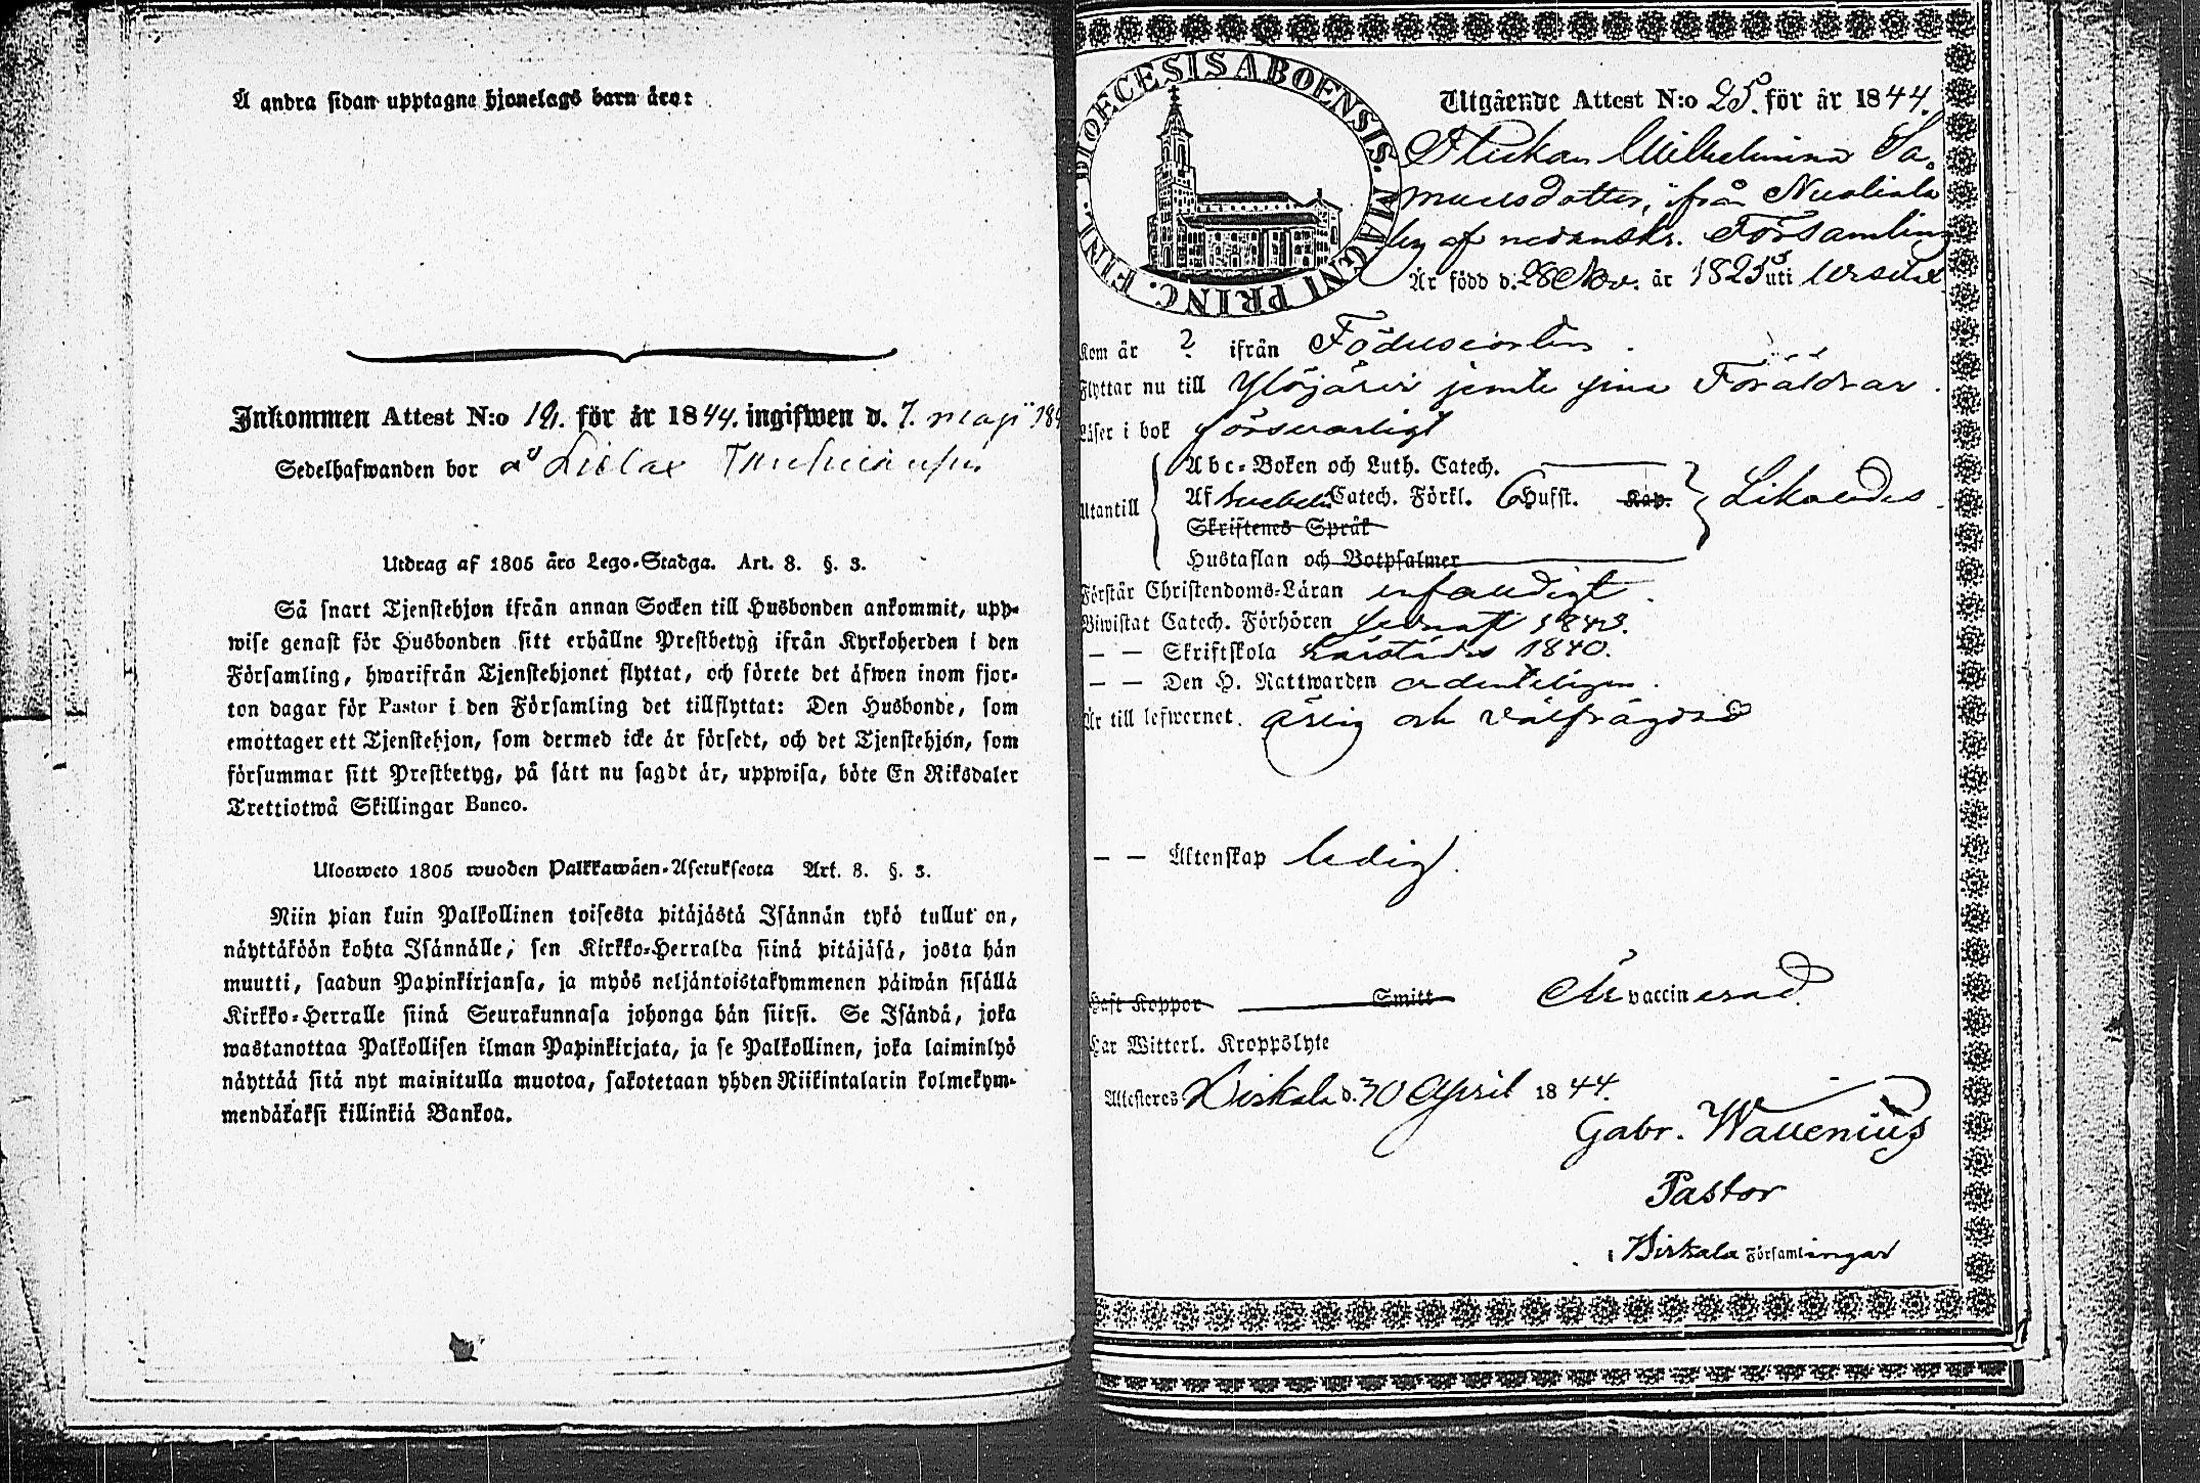 Å andra sidan upptagne hjonelags barn äro:
Inkommen Attest N:o 12. för år 1844. ingifwen d. 7. maji 184
Sedelhafwanden bor å
Utdrag af 1805 års Lego-Stadga. Art. 8. §. 3.
Så snart Tjenstehjon ifrån annan Socken till Husbonden ankommit, upp-
wise genast för Husbonden sitt erhållne Prestbetyg ifrån Kyrkoherden i den
Församling, hwarifrån Tjenstehjonet flyttat, och förete det äfwen inom fjor-
ton dagar för Pastor i den Församling det tillflyttat: Den Husbonde, som
emottager ett Tjenstehjon, som dermed icke är försedt, och det Tjenstehjon, som
försummar sitt Prestbetyg, på sätt nu sagdt är, uppwisa, böte En Riksdaler
Trettiotwå Skillingar Banco.
Ulosweto 1805 wuoden Palkkawäen-Asetuksesta Art. 8. §. 3.
Niin pian kuin Palkollinen toisesta pitäjästä Isännän tykö tullut on,
näyttäköön kohta Isännälle, sen Kirkko-Herralda siinä pitäjäsä, josta hän
muutti, saadun Papinkirjansa, ja myös neljäntoistakymmenen päiwän sisällä
Kirkko-Herralle siinä Seurakunnasa johonga hän siirsi. Se Isändä, joka
wastanottaa Palkollisen ilman Papinkirjata, ja se Palkollinen, joka laiminlyö
näyttää sitä nyt mainitulla muotoa, sakotetaan yhden Riikintalarin kolmekym-
mendäkaksi killinkiä Bankoa.
DIOECESIS ABOENSIS. MAGNI PRINC. FINL.
Utgående Attest N:o 25. för år 1844.
Flickan Wilhelmina Sa-
muelsdotter, ifrån Nuoliala
by af nedanskr. Församling
Är född d. 28 Nov. år 1825 uti
Kom år ? ifrån Födelseorten.
Flyttar nu till Ylöjärvi jemte sina Föräldrar.
Läser i bok försvarligt
Utantill
Abc-Boken och Luth. Catech.
Af Svebelii Catech. Förkl. 6 Hufst. Kap. Likaledes.
Skriftenes Språk
Hustaflan och Botpsalmer
Förstår Christendoms-Läran enfaldigt.
Biwistat Catech. Förhören sednast 1843.
— — Skriftskola härstädes 1840.
— — Den H. Nattwarden ordenteligen.
Är till lefwernet ärlig och välfrägdad
— — Äktenskap ledig.
Haft Koppor Smitt Är vaccinerad.
Har Witterl. Kroppslyte
Attesteres Birkala d. 30 April 1844.
Gabr. Wallenius
Pastor
i Birkala Församlingar